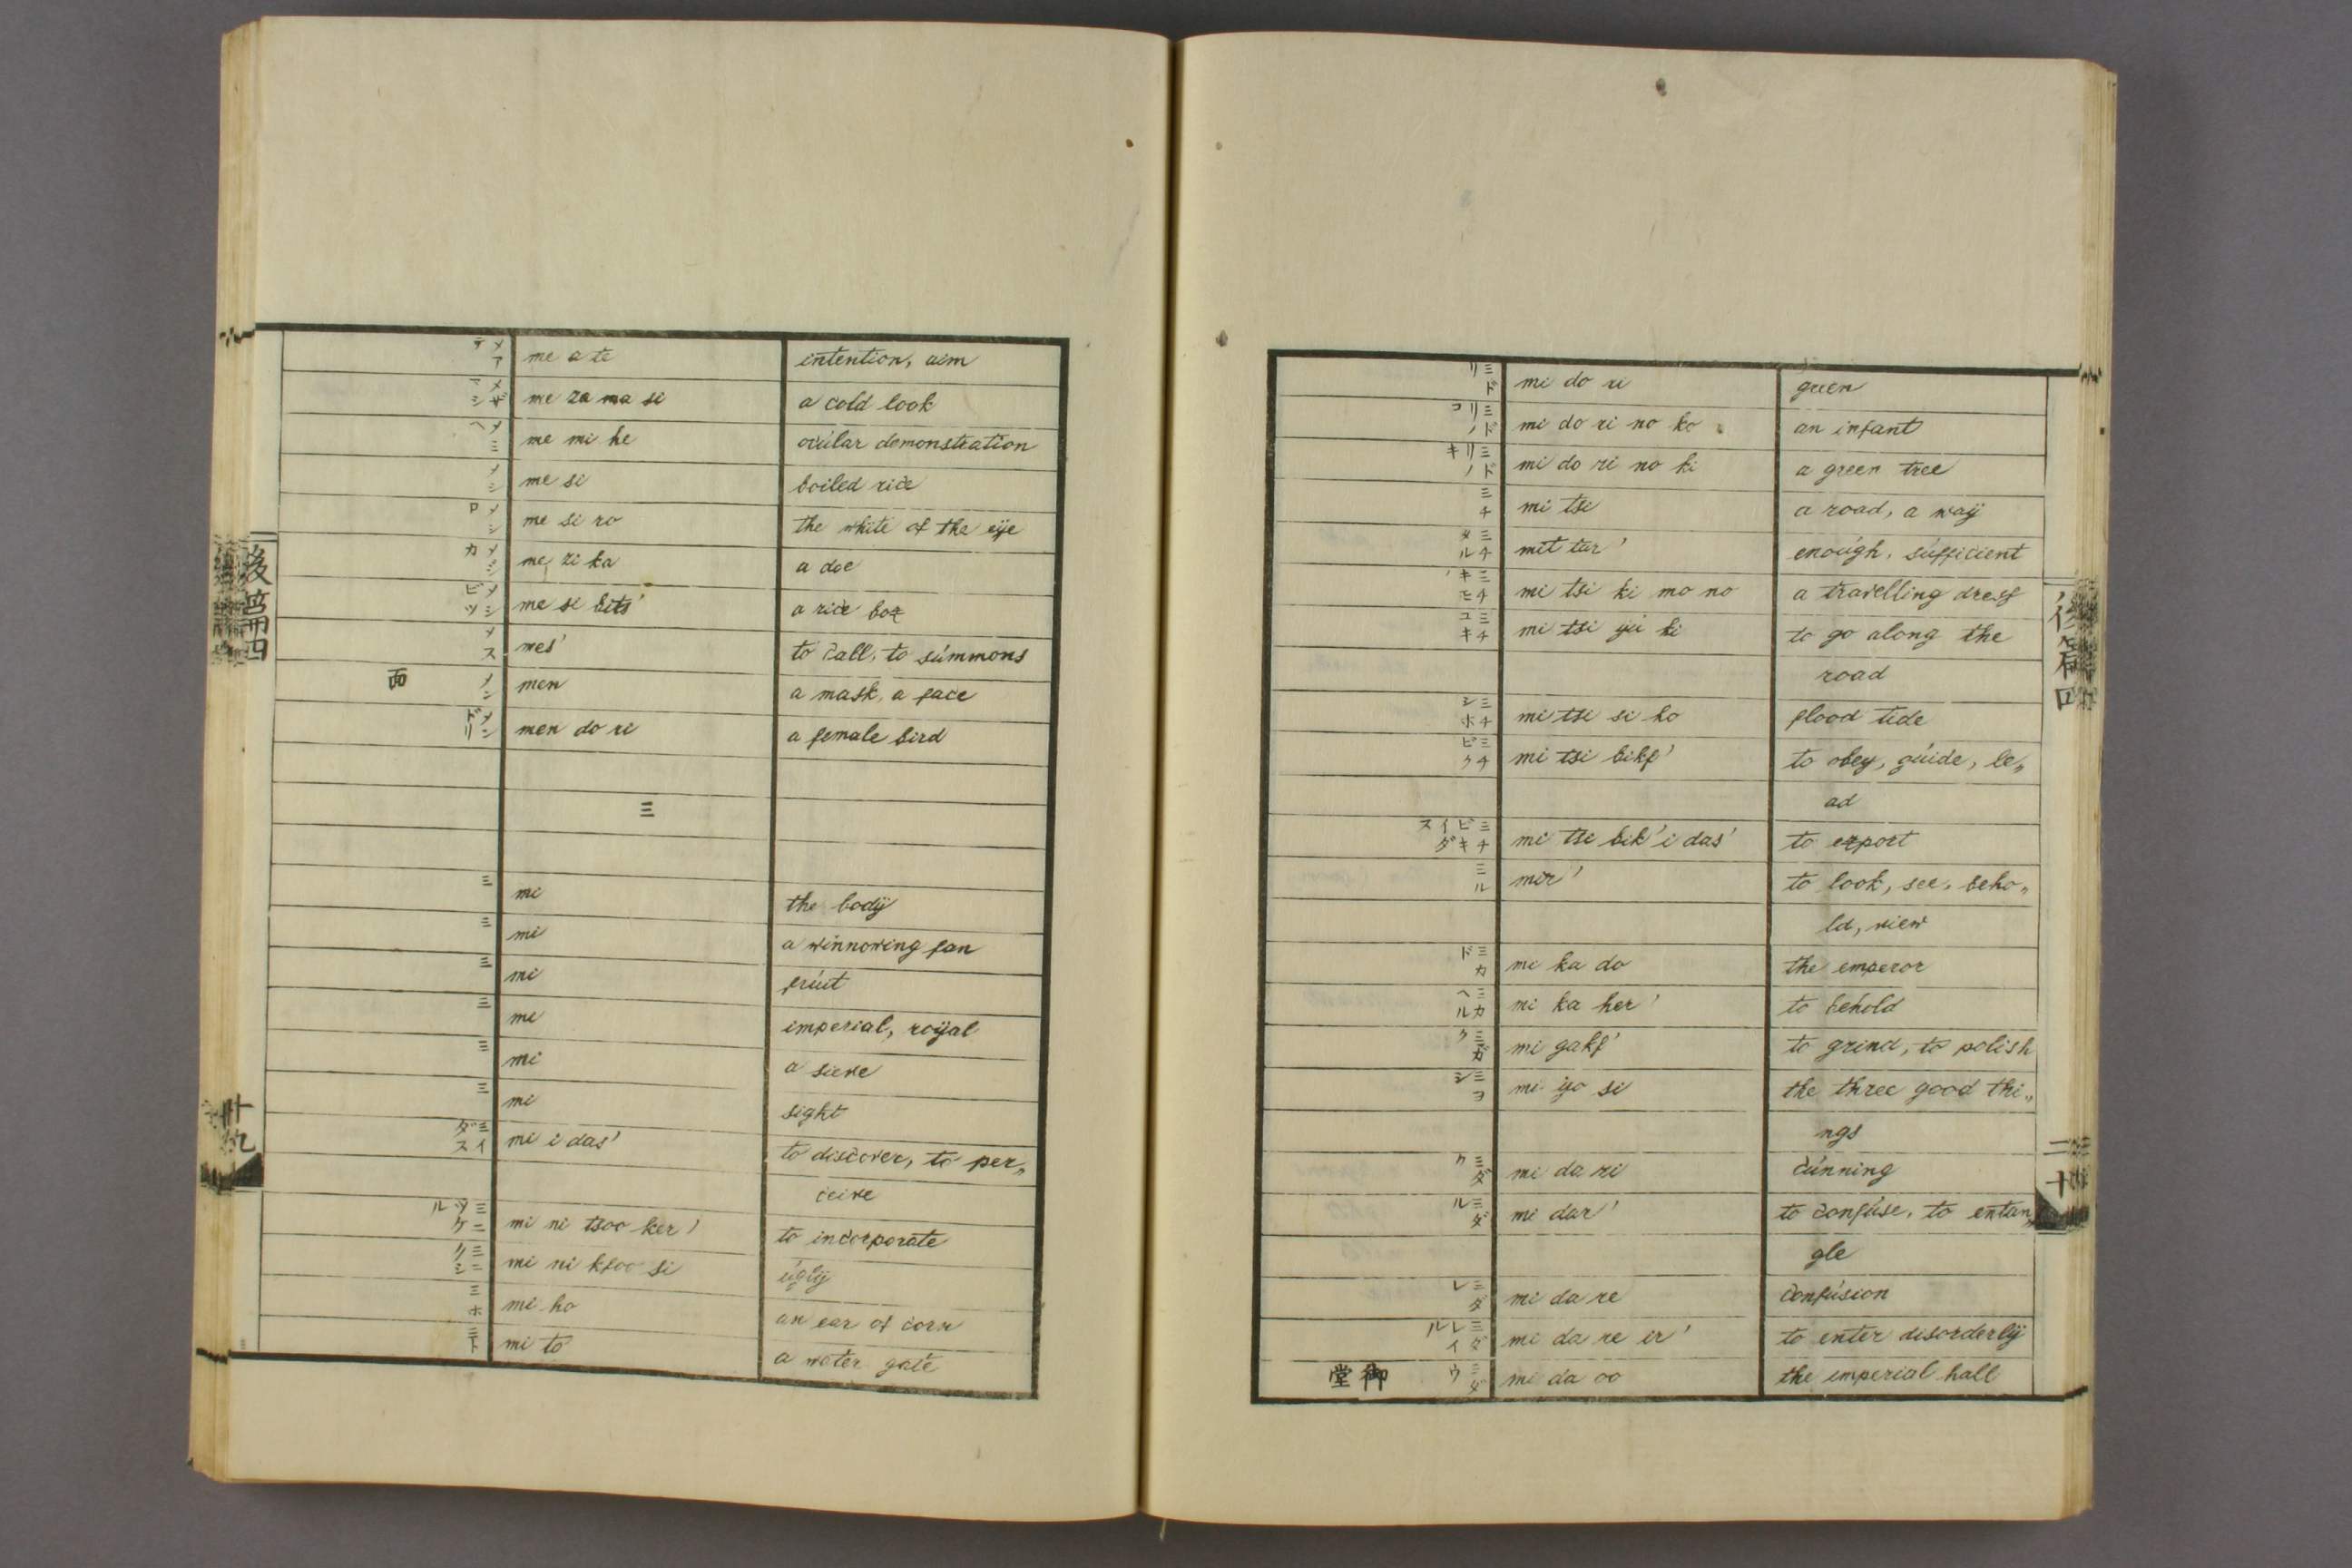 メアテ me a te intention, aim
メザマシ me za ma si a cold look
メミヘ me mi he ocúlar demonstration
メシ me si boiled rice
メシロ me si ro the white of the eÿe
メジカ me zi ka a doe
メシビツ me si bits' a rice box
メス mes' to call, to súmmons
面 メン men a mask, a face
メンドリ men do ri a female bird
ミ
ミ mi the bodÿ
ミ mi a winnowing fan
ミ mi frúit
ミ mi imperial, roÿal
ミ mi a sieve
ミ mi sight
ミイダス mi i das' to discover, to per„
ceive
ミニツケル mi ni tsoo ker' to incorporate
ミニクシ mi ni kfoo si úglÿ
ミホ mi ho an ear of corn
ミト mi to a water gate
後篇四
廿九
ミドリ mi do ri green
ミドリノコ mi do ri no ko an infant
ミドリノキ mi do ri no ki a green tree
ミチ mi tsi a road, a waÿ
ミチタル mit tar' enoúgh, súfficient
ミチキモノ mi tsi ki mo no a travelling dress
ミチユキ mi tsi yú ki to go along the
road
ミチシホ mi tsi si ho flood tide
ミチビク mi tsi bikf' to obey, gúide, le„
ad
ミチビキイダス mi tsi bik' i das' to export
ミル mir' to look, see, beho„
ld, view
ミカド mi ka do the emperor
ミカヘル mi ka her' to behold
ミガク mi gakf' to grind, to polish
ミヨシ mi yo si the three good thi„
ngs
ミダリ mi da ri cúnning
ミダル mi dar' to confúse, to entan„
gle
ミダレ mi da re confúsion
ミダレイル mi da re ir' to enter disorderlÿ
御堂 ミダウ mi da oo the imperial hall